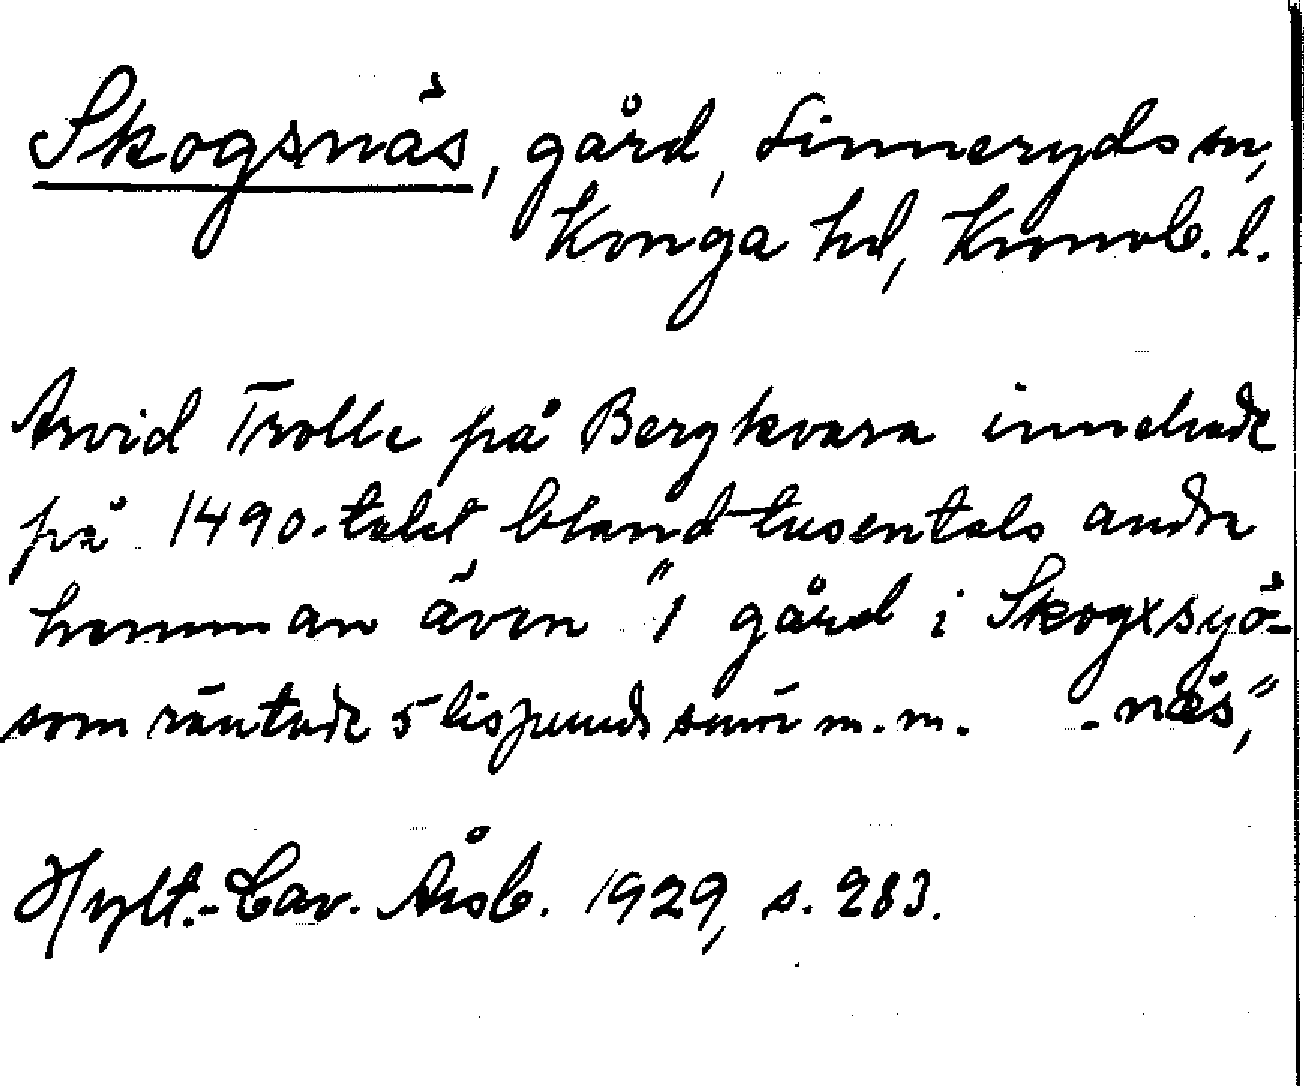 Skogsnäs, gård, Linneryds sn,
Konga hd, Kronob. l.
Arvid Trolle på Bergkvara innehade
på 1490-talet bland tusentals andra
hemman även "1 gård i Skogxsyö-
som räntade 5 lispund smör m.m. -næs",
Hylt.-Cav. Årsb. 1929, s. 283.